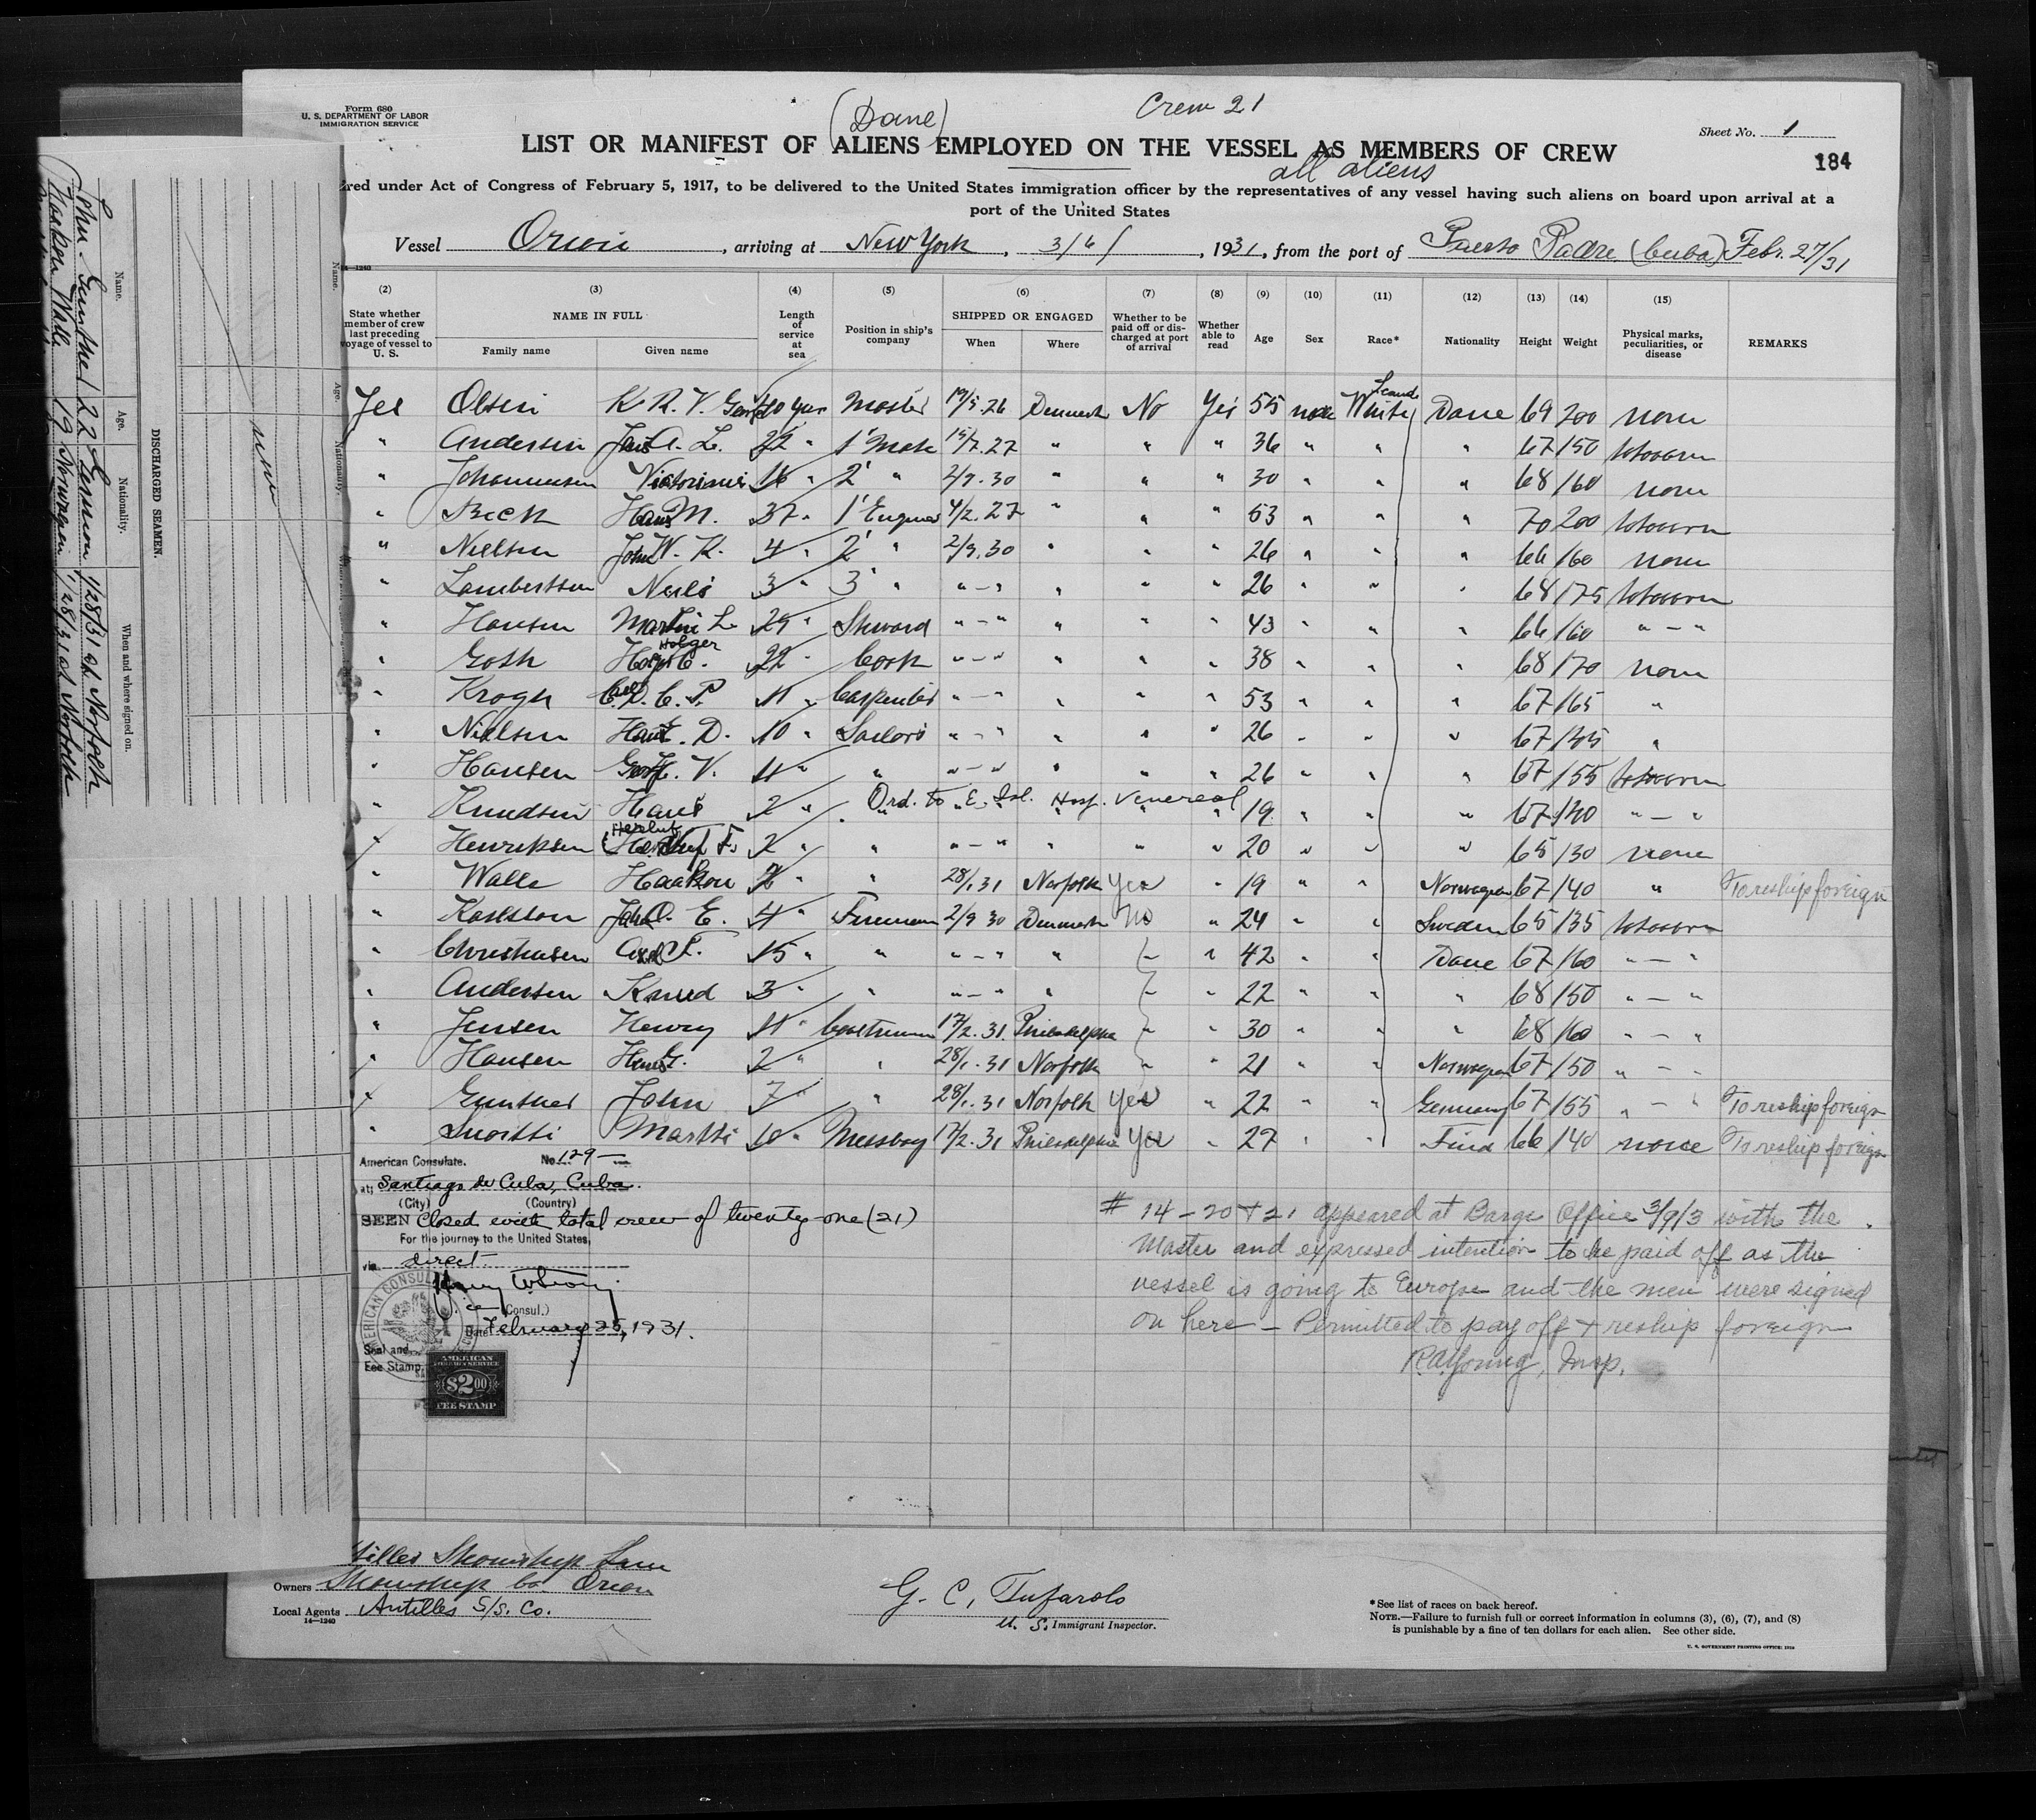 Form 680
U. S. DEPARTMENT OF LABOR
IMMIGRATION SERVICE
(Dane)
Crew 21
Sheet No. 1
LIST OR MANIFEST OF ALIENS EMPLOYED ON THE VESSEL AS MEMBERS OF CREW
all aliens
184
red under Act of Congress of February 5, 1917, to be delivered to the United States immigration officer by the representatives of any vessel having such aliens on board upon arrival at a
port of the United States
Vessel Orion, arriving at New York, 3/6/, 1931, from the port of Puerto Padre (Cuba) Febr. 27/31
14—1240
(2) (3) (4) (5) (6) (7) (8) (9) (10) (11) (12) (13) (14) (15)
State whether member of crew last preceding voyage of vessel to U. S.
NAME IN FULL
Family name
Given name
Length of service at sea
Position in ship's company
SHIPPED OR ENGAGED
When
Where
Whether to be paid off or discharged at port of arrival
Whether able to read
Age
Sex
Race*
Nationality
Height
Weight
Physical marks, peculiarities, or disease
REMARKS
Yes Olsen K. R. V. Georg 40 years Master 19/5.26 Denmark No Yes 55 male Scand White Dane 69 200 none
" Andersen Jens A. L. 22 " 1' Mate 15/7.27 " " " 36 " " " 67 150 tattoo arm
" Johannesen 16 " 2' " 2/9.30 " " " 30 " " " 68 160 none
" Beck Hans M. 37 " 1' Engineer 4/2.27 " " " 53 " " " 70 200 tattoo arm
" Nielsen John W. K. 4 " 2' " 2/9.30 " " " 26 " " " 66 160 none
" Lambertsen Neils 3 " 3' " " — " " " " 26 " " " 68 175 tattoo arm
" Hansen Martin L. 29 " Steward " — " " " " 43 " " " 66 160 " — "
" Goth Holger C. 22 " Cook " — " " " " 38 " " " 68 170 none
" Krogh Carl D. C. P. 11 " Carpenter " — " " " " 53 " " " 67 165 "
" Nielsen Hans E. D. 10 " Sailors " — " " " " 26 " " " 67 145 "
" Hansen Georg E. V. 11 " " " — " " " " 26 " " " 67 155 tattoo arm
" Knudsen Hans 2 " Ord. to E. Isl. Hosp. Venereal " 19 " " " 67 140 " — "
" Henriksen Herluf F. 2 " " " — " " " " 20 " " " 65 130 none
" Walle Haakon 2 " " 28/1.31 Norfolk Yes " 19 " " Norwegian 67 140 " To reship foreign
" Karlsson John O. E. 4 " Firemen 2/9 30 Denmark No " 24 " " Sweden 65 135 tattoo arm
" Christensen Axel T. 15 " " " — " " " " 42 " " Dane 67 160 " — "
" Andersen Knud 3 " " " — " " " " 22 " " " 68 150 " — "
" Jensen Henry 11 " 17/2.31. Philadelphia " " 30 " " " 68 160 " — "
" Hansen Hans G. 2 " " 28/1.31 Norfolk " " 21 " " Norwegian 67 150 " — "
" Gunther John 7 " " 28/1.31 Norfolk Yes " 22 " " Germany 67 155 " — " To reship foreign
" Martti 10 " Messboy 17/2.31 Philadelphia Yes " 27 " " Find 66 140 none To reship foreign
American Consulate. No. 129—
at Santiago de Cuba, Cuba.
(City) (Country)
SEEN Closed with total crew of twenty-one (21)
For the journey to the United States,
via direct.
Harry W. Story
Vice Consul.)
Date February 25, 1931.
Seal and
Fee Stamp.
AMERICAN CONSUL
AMERICAN
FOREIGN SERVICE
$2.00
FEE STAMP
# 14 – 20 + 21 appeared at Barge Office 3/9/3 with the
Master and expressed intention to be paid off as the
vessel is going to Europe and the men were signed
on here – Permitted to pay off + reship foreign
R. A. Young, Insp.
Steamship Line
Owners Steamship Co. Orion
Local Agents Antilles S/S. Co.
14—1240
G. C. Tufarolo
U. S. Immigrant Inspector.
*See list of races on back hereof.
NOTE.—Failure to furnish full or correct information in columns (3), (6), (7), and (8)
is punishable by a fine of ten dollars for each alien. See other side.
DISCHARGED SEAMEN.
Name. Age. Nationality. When and where signed on.
John Gunther 22 German 1/28/31 at Norfolk
Haakon Walle 19 Norwegian 1/28/31 at Norfolk
none
Name.
Age.
Nationality.